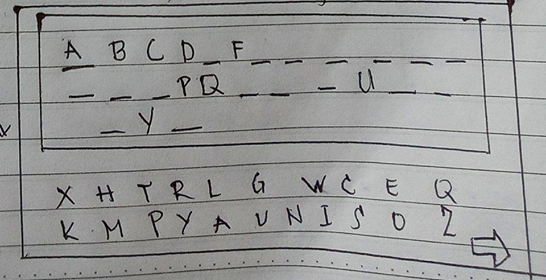 A B C D _ F _ _ _ _ _ _
_ _ _ P Q _ _ _ U _ _
_ Y _
X H T R L G W C E Q
K M P Y A U N I S O Z